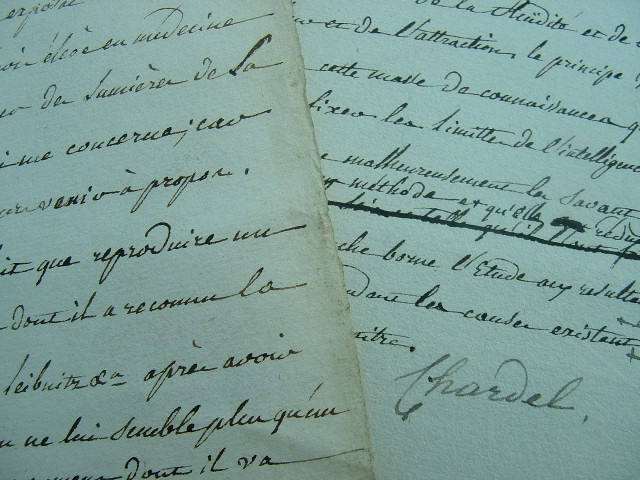 exposé
élève en médecine
des lumières de la
me concerne; car
venir à propos.
que reproduire un
dont il a reconnu la
leibnitz &a après avoir
ne lui semble plus qu'un
dont il va
de la fluidité et de
et de l'attraction, le principe
cette masse de connaissances
fixer les limittes de l'intelligence
malheureusement les savant
méthode et qu'elle
borne l'Etude aux resulta
dans les causes existant
Chardel.